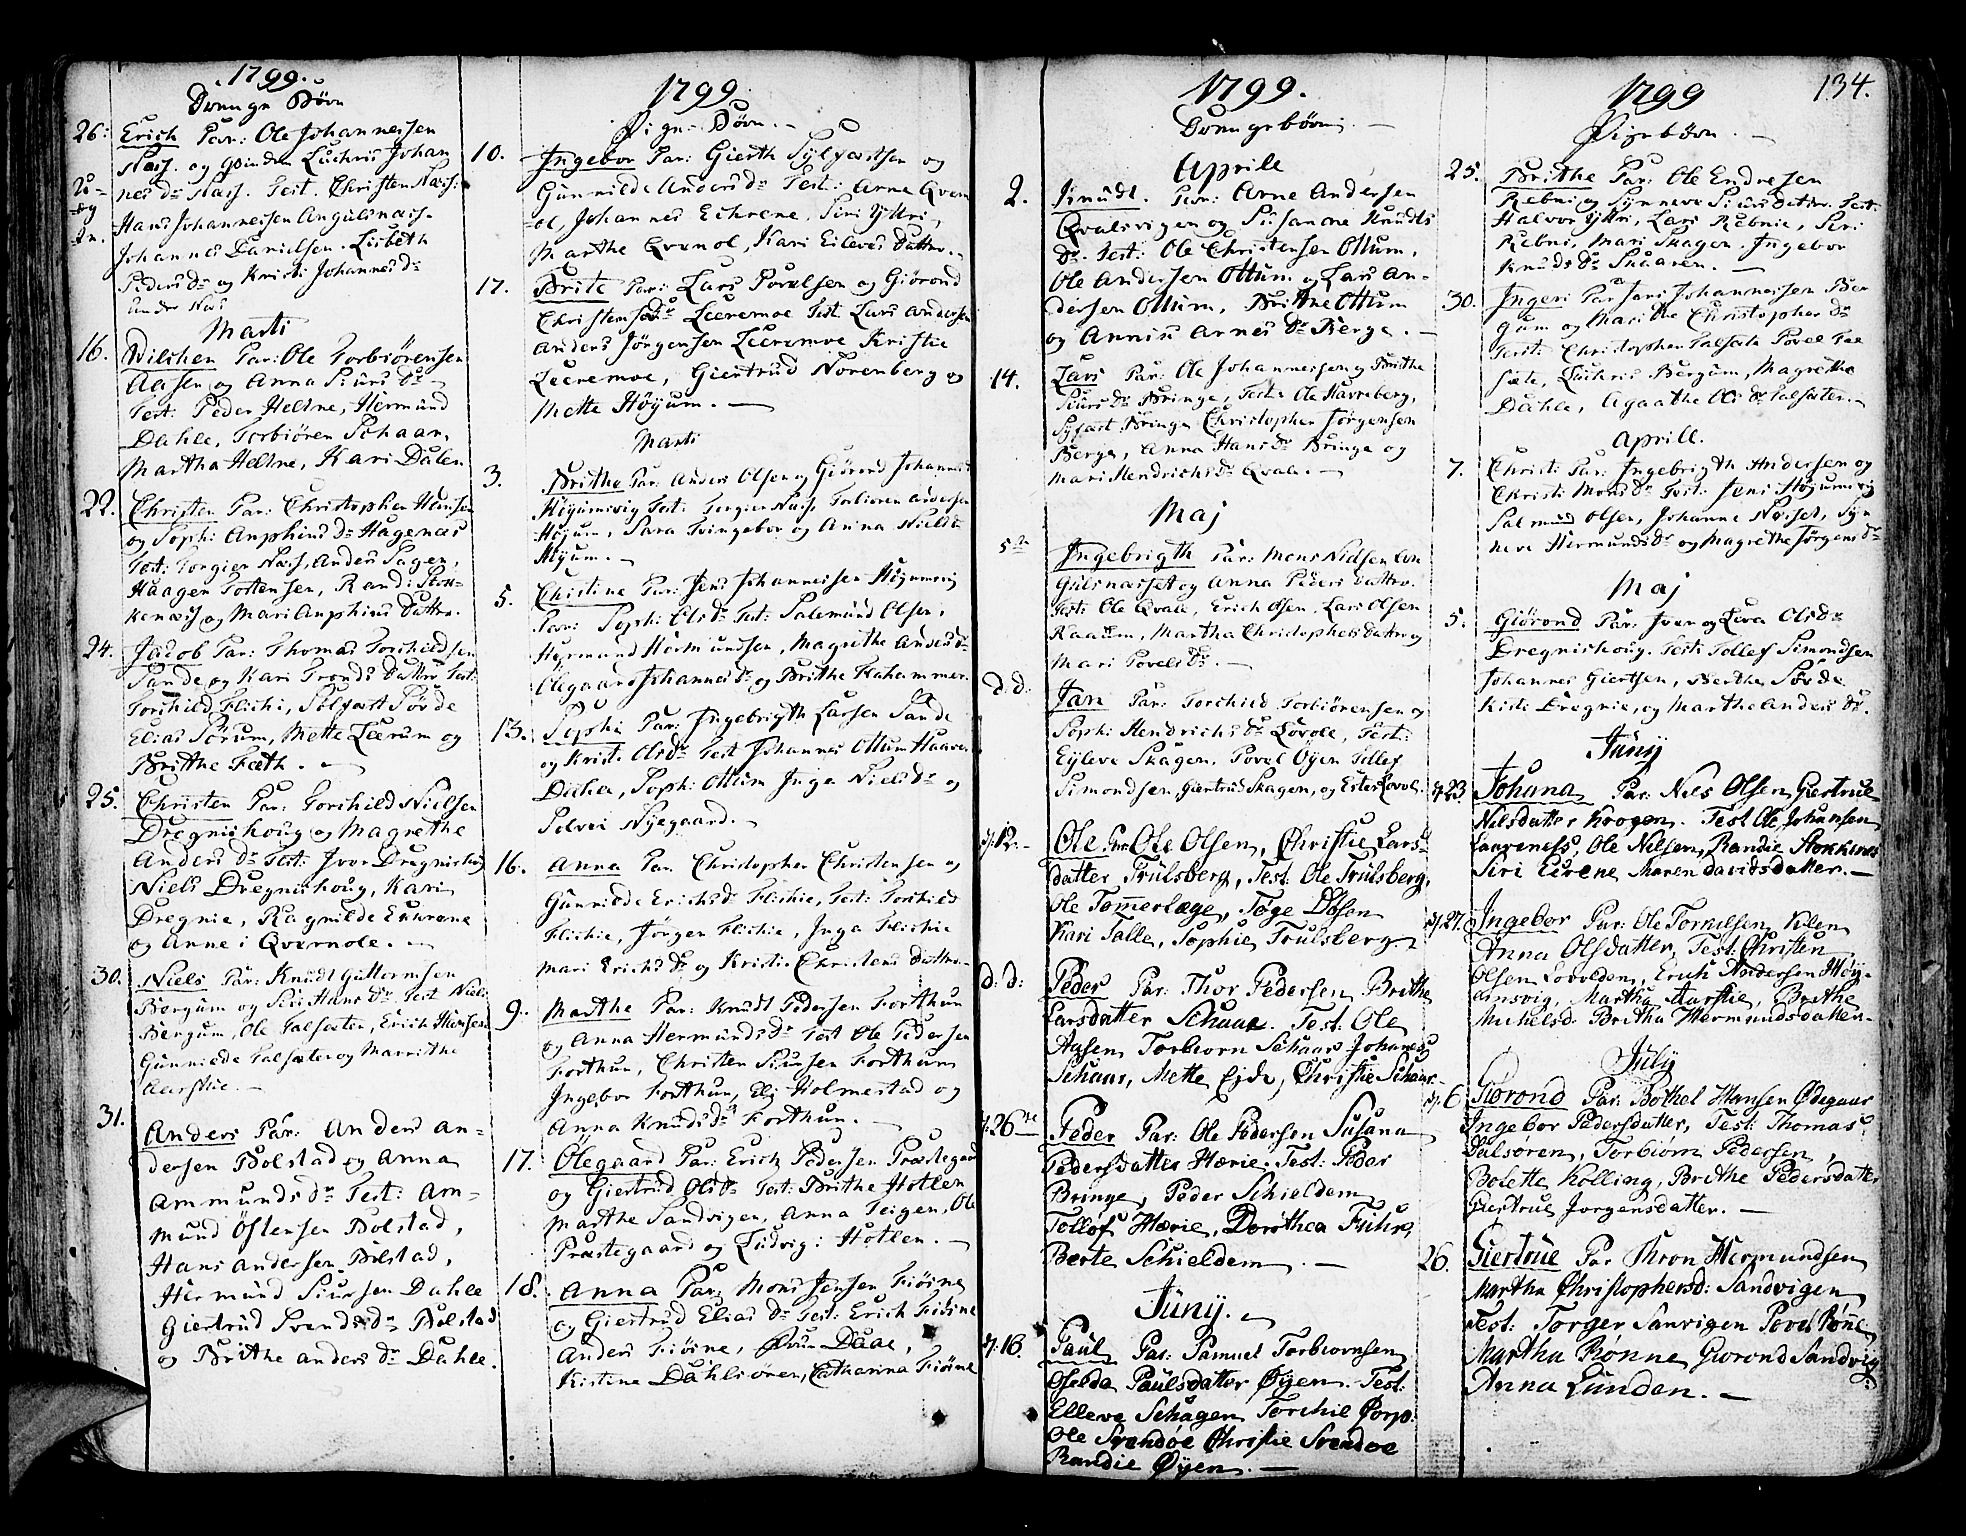 1799.
Drenge Børn
26: Erich Par: Ole Johannessen
Næss. og qvinden Luchris Johan
nes dr Næss. Test. Christen Næss:
Hans Johannessen Angulsnæss.
Johannes Danielsen. Lisbeth
Peders dr og Kristi Johannes dr
Marti
16. Par: Ole Torbiørensen
Aasen og Anna Siurs dr
Test: Peder Heltne, Hermund
Dahle, Torbiøren Schaar,
Martha Heltne, Kari Dalen
22. Christen Par: Christopher Hansen
og Soph: Anphins dr Hagenæs
Test: Torgier Næss, Anders
Haagen Tostensen, Randi Stok-
kenæs og Mari Anphins Dattr.
24. Jacob Par: Thomas Torchildsen
Sande og Kari Tronds Dattr Test:
Torchild Flichi, Sølfæst Sørde
Elias Sørum, Mette Leerum og
Brithe Fæth.
25. Christen Par: Torchild Nielsen
Dregnishoug og Magrethe
Anders dr Test: Iver Dregnishoug
Niels Dregnishoug, Kari
Dregnie, Ragnilde
og Anne i Qvernole.
30. Niels Par: Knudt Guttormsen
Bergum og Siri Hans dr Test Niels
Bergum, Ole Talsæter, Erich Hansen
Gunnilde Talsæter og Marrithe
Aarstie.
31. Anders Par: Anders An-
dersen Bolstad og Anna
Ammunds dr Test: Am-
mund Østensen Bolstad,
Hans Andersen Bolstad,
Hermund Siursen Dahle
Giertrud Svends dr Bolstad
og Brithe Anders dr Dahle.
1799.
Pige-Børn.
10. Ingebor Par: Gierth Sylfæstsen og
Gunnilde Anders dr Test: Arne Qvern
ol, Johannes Echrene, Siri Yttri,
Marthe Qvernol, Kari Eilevs Dattr.
17. Brite Par: Lars Povelsen og Giørond
Christens dr Leeremoe Test Lars Andersen
Anders Jørgensen Leeremoe Kristie
Leeremoe, Giertrud Norenberg og
Mette Høyum.
Marti
3. Brithe Par: Anders Olsen og Giørond Johannes dr
Høyumsvig Test: Torgier Næss, Torbiøren Andersen
Høyum, Sara Tvingebor og Anna Niels dr
Høyum.
5. Christine Par: Jens Johannessen Høyumsvig
Soph: Ols dr Test: Salemund Olsen,
Hermund Hermundsen, Magrethe Anders dr
Olegaard Johannes dr og Brithe Kahammer
13. Sophi Par: Ingebrigth Larsen Sande
og Kristi Ols dr Test Johannes Ottum Haaver
Dahle, Soph: Ottum Inga Niels dr og
Solvei Nyegaard.
16. Anna Par Christopher Christensen og
Gunnilde Erichs dr Flichie, Test: Torchild
Flichie, Jørgen Flichie, Inga Flichie
Mari Erichs dr og Kristi Christens Dattr.
9. Marthe Par: Knudt Pedersen Forthun
og Anna Hermunds dr Test Ole Pedersen
Forthun, Christen Siursen Forthun
Ingebor Forthun, Eli Holmestad og
Anna Knuds dr Forthun.
17. Olegaard Par: Erich Pedersen Præstegaard
og Giertrud Ols dr Test: Brithe Hotlen
Marthe Sandvigen, Anna Teigen, Ole
Præstegaard og Ludvig: Hotlen.
18. Anna Par: Mons Jensen Fiøsne
og Giertrud Elias dr Test: Erich Fiøsne
Anders Fiøsne, Daae,
Kistine Dahlsøren, Catharina Fiøsne
1799.
Drengebørn.
Aprill
2. Knudt. Par: Arne Andersen
Qvalsvigen og Susanne Knudts
dr. Test: Ole Christensen Ottum,
Ole Andersen Ottum og Lars An-
dersen Ottum, Brithe Ottum
og Annis Arnes dr Berge.
14. Lars Par: Ole Johannessen og Brithe
Siurs dr Bringe, Test: Ole Havreberg,
Syfæst Bringe Christopher Jørgensen
Berge, Anna Hans dr Bringe og
Mari Hendrichs dr Qvale.
Maj
5te Ingebrigth Par: Mons Nielsen An
gulsnæsset og Anna Peders Dattr.
Test: Ole Qvale, Erich Olsen, Lars Olsen
Kaarem, Martha Christophers Datter og
Mari Povels dr.
d: d: Jan Par: Torchild Torbiørensen og
Soph: Hendrichs dr Lovole, Test:
Eyleve Skagen, Povel Øyen Tollef
Simondsen, Giertrud Skagen, og Ester Lovole.
d: 12. Ole Par Ole Olsen, Christie Lars-
datter Trulsberg, Test: Ole Trulsberg,
Ole Tømerlæge, Tøge Døsen
Kari Talle, Sophie Trulsberg
d: d: Peder Par: Thor Pedersen, Brithe
Larsdatter Schaar. Test: Ole
Aasen, Torbiorn Schaar, Johanes
Schaar, Mette Eide, Christie Schaar
d: 26ne Peder Par: Ole Pedersen Susana
Pedersdatter Hærie. Test: Peder
Bringe, Peder Schieldem
Tollof Hærie, Dorothea Fuhre,
Berte Schieldem.
Juny.
d: 16. Paul Par: Samuel Torbiornsen
Oselda Paulsdatter Øyen. Test:
Elleve Schagen, Torchil Dorp
Ole Svendøe Christie Svendøe
Randie Øyen.
1799 134.
Pigebørn.
25. Brithe Par: Ole Endresen
Rebni og Synneve Siurs Dattr. Test:
Halvor Yttri, Lars Rebnie, Siri
Rebni, Mari Skagen, Ingebor
Knuds dr Skaaren.
30. Ingeri Par Johannessen Ber
gum og Marithe Christopher dr
Test: Christopher Talsæte Povel Tal
sæte, Luchris Bergum, Magrethe
Dahle, Agaathe Ols dr Talsæter.
Aprill.
7. Christi Par: Ingebrigth Andersen og
Christi Mons dr Test: Jens Høyumsvig
Salmund Olsen, Johanne Næsset, Syn
neve Hermunds dr og Magrethe Jørgens dr
Maj
5. Giørond Par: Iver og Eva Ols dr
Dregnishoug. Test: Tollef Simondsen
Johannes Giertsen, Berthe Sørde
Kisti Dregnie, og Marthe Anders dr.
Juny
d: 23. Johana Par: Nils Olsen, Giertrue
Nilsdatter Krogen. Test Ole Johansen
Ole Nilsen, Randie Stokkenes
Siri Eirene Maren Davidsdatter.
d: 27. Ingebor Par: Ole Tornilsen, Kilen
Anna Olsdatter, Test: Christen
Olsen Lovolden, Erich Andersen Høy-
umsvig, Martha Aarstie, Brithe
Michelsd. Britha Hermundsdatter
July
d: 6. Giorond Par: Bothel Hansen Ødegaar
Ingebor Pedersdatter, Test: Thomas
Dalsøren, Torbiørn Pedersen,
Bolette Kolling, Brithe Pedersdatter
Giertrue Jorgensdatter.
26. Giertrue Par Thron Hermundsen
Martha Christophersd: Sandvigen
Test: Torger Sanvigen Povel Rønne
Martha Rønne Giorond Sandvig
Anna Lunden.